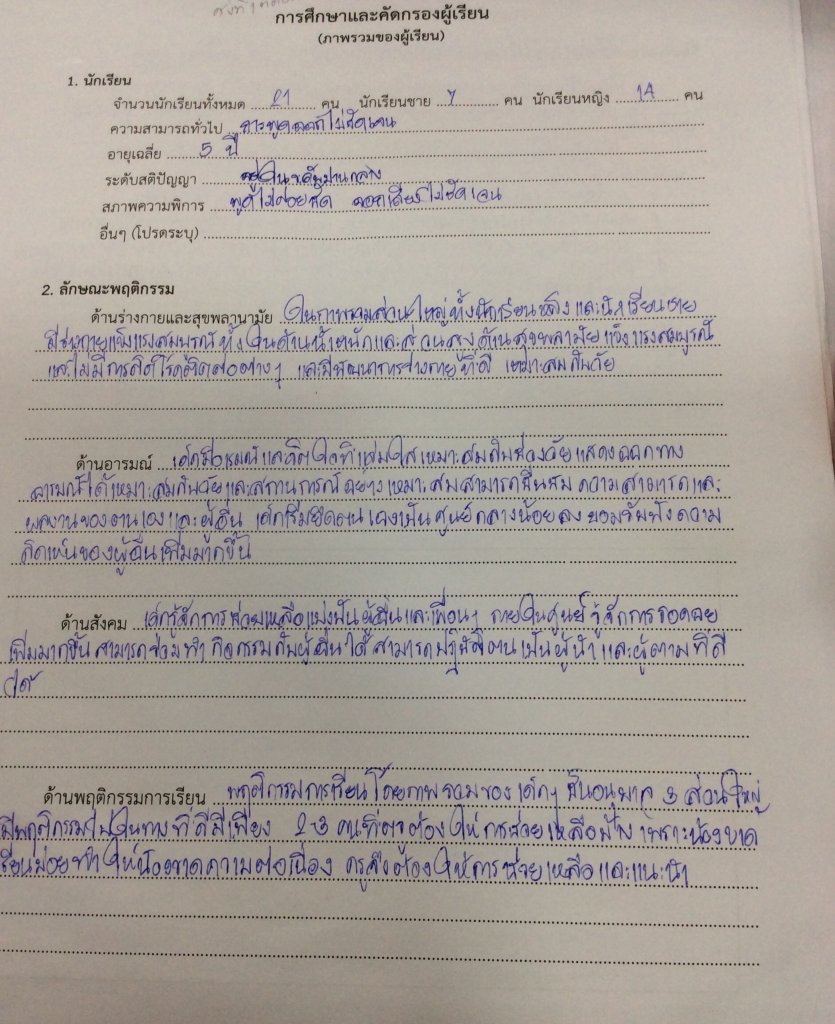 การศึกษาและคัดกรองผู้เรียน
(ภาพรวมของผู้เรียน)
1. นักเรียน
จำนวนนักเรียนทั้งหมด 21 คน นักเรียนชาย 7 คน นักเรียนหญิง 14 คน
ความสามารถทั่วไป การพูดออกไม่ชัดเจน
อายุเฉลี่ย 5 ปี
ระดับสติปัญญา อยู่ในระดับปานกลาง
สภาพความพิการ พูดไม่ค่อยชัด ออกเสียงไม่ชัดเจน
อื่นๆ (โปรดระบุ)
2. ลักษณะพฤติกรรม
ด้านร่างกายและสุขพลานามัย ในภาพรวมส่วนใหญ่ทั้งนักเรียนหญิงและนักเรียนชาย
มีร่างกายแข็งแรงสมบูรณ์ทั้งในด้านน้ำหนักและส่วนสูงด้านสุขพลามัยแข็งแรงสมบูรณ์
และไม่มีการติดโรคติดต่อต่างๆ และมีพัฒนาการร่างกายที่ดี เหมาะสมกับวัย
ด้านอารมณ์ เด็กมีอารมณ์และจิตใจที่แจ่มใสเหมาะสมกับช่วงวัยแสดงออกทาง
อารมณ์ได้เหมาะสมกับวัยและสถานการณ์อย่างเหมาะสมสามารถชื่นชมความสามารถและ
ผลงานของตนเองและผู้อื่น เด็กเริ่มยึดตนเองเป็นศูนย์กลางน้อยลงยอมรับฟังความ
คิดเห็นของผู้อื่นเพิ่มมากขึ้น
ด้านสังคม เด็กรู้จักการช่วยเหลือแบ่งปันผู้อื่นและเพื่อนๆ ภายในศูนย์ รู้จักการรอคอย
เพิ่มมากขึ้นสามารถร่วมทำกิจกรรมกับผู้อื่นได้สามารถปฏิบัติตนเป็นผู้นำและผู้ตามที่ดี
ได้
ด้านพฤติกรรมการเรียน พฤติกรรมการเรียนโดยภาพรวมของเด็กๆ ชั้นอนุบาล 3 ส่วนใหญ่
มีพฤติกรรมไปในทางที่ดีมีเพียง 2-3 คนที่ครูต้องให้การช่วยเหลือบ้าง เพราะน้องขาด
เรียนบ่อยทำให้น้องขาดความต่อเนื่อง ครูจึงต้องให้การช่วยเหลือและแนะนำ